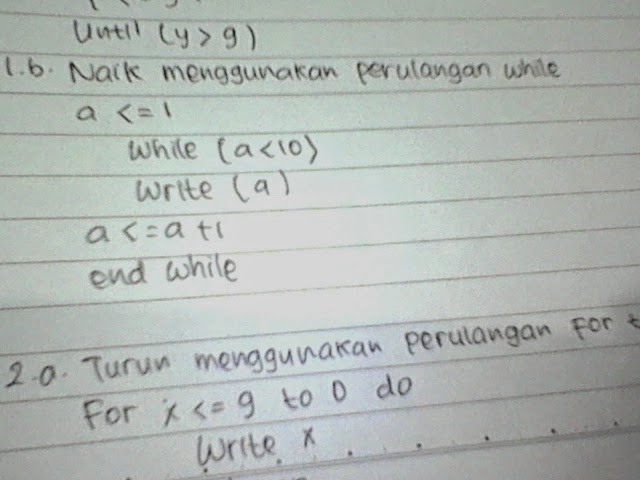 Until (y > 9)
1.b. Naik menggunakan perulangan while
a <= 1
while (a<10)
write (a)
a <= a +1
end while
2.a. Turun menggunakan perulangan for
For x <= 9 to 0 do
Write x